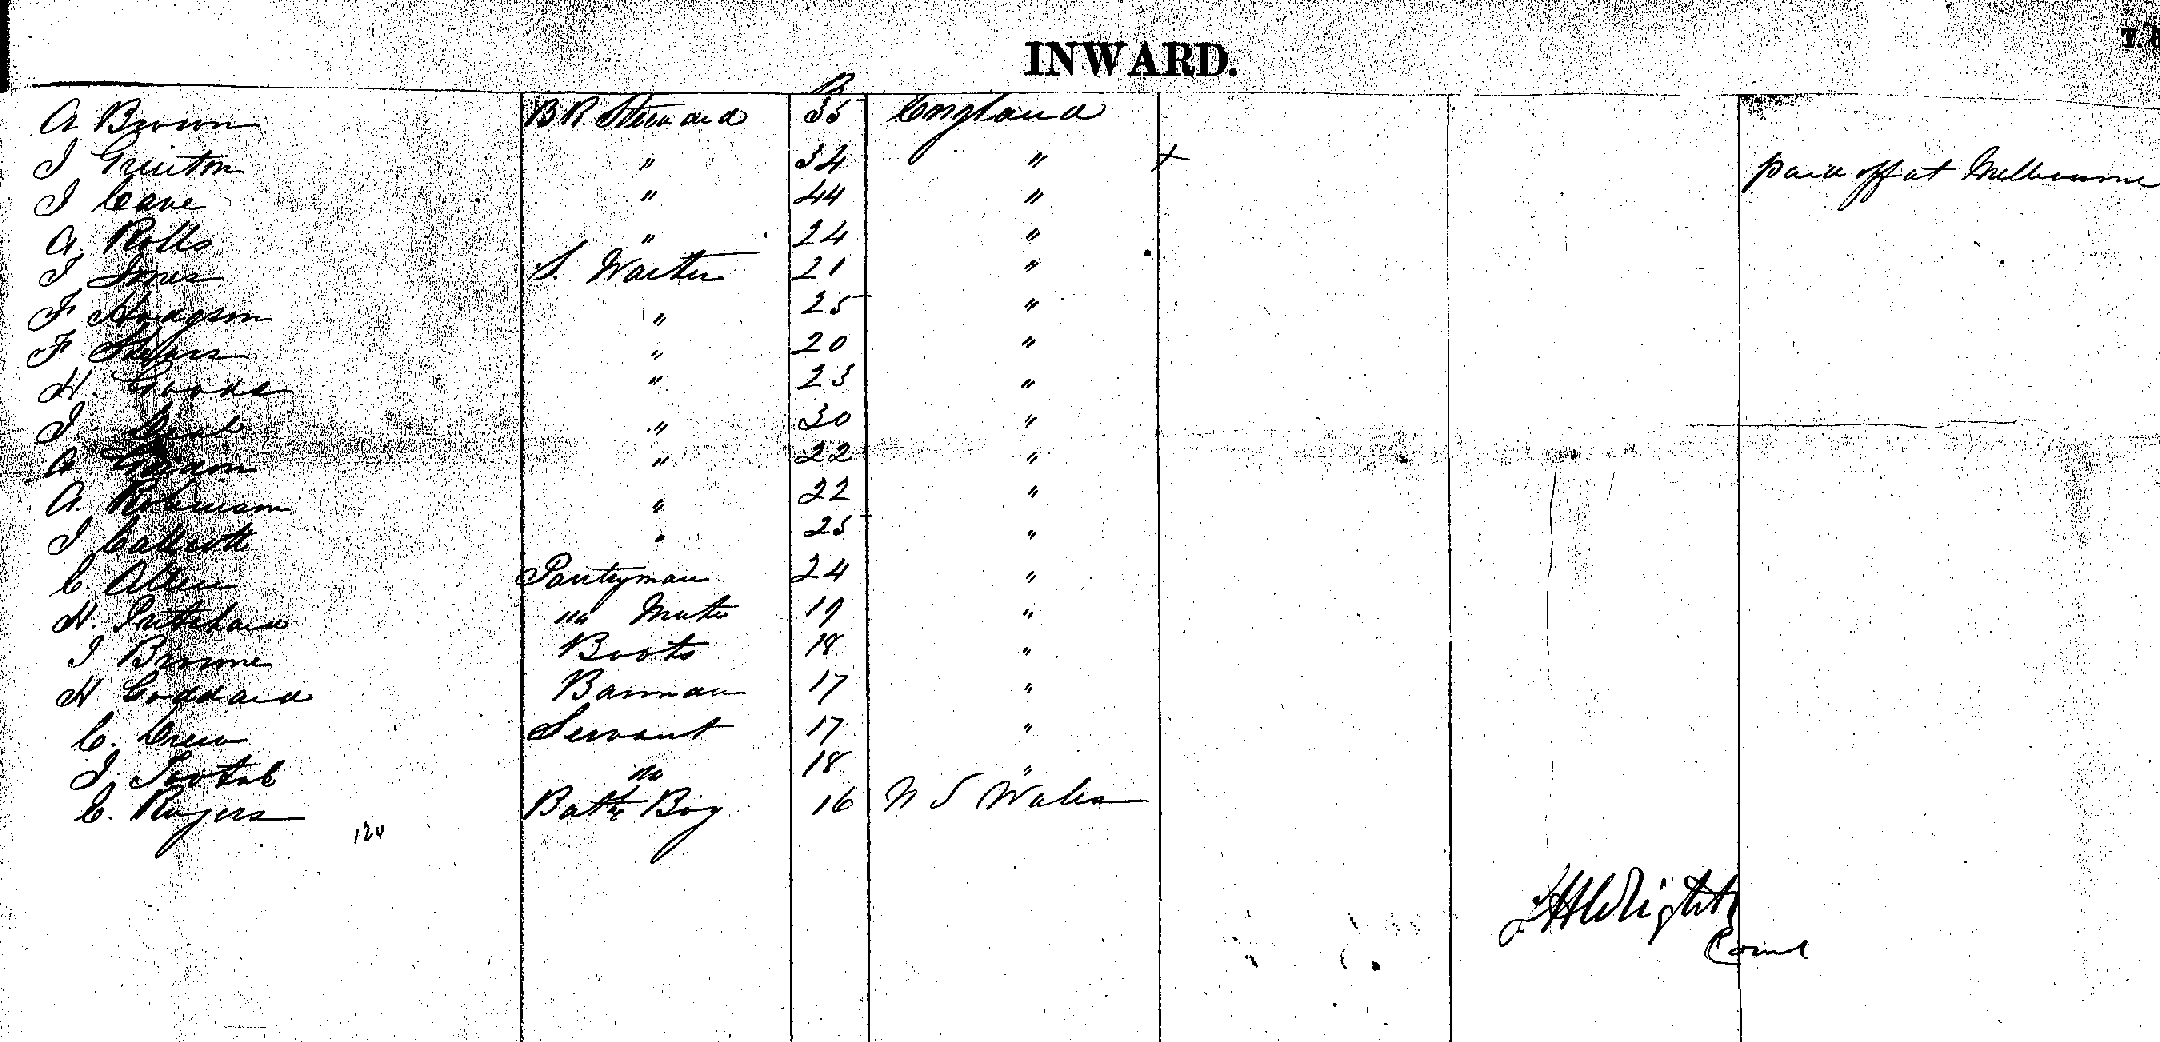 INWARD.
A Brown BR Steward 35 England
J " 34 " + paid off at Melbourne
J Cave " 44 "
A. Rolls " 24 "
J Jones S. Waiter 21 "
F Hodgson " 25 "
F. " 20 "
H. Goode " 23 "
J " 30 "
A " 22 "
A. Robinson " 22 "
J " 25 "
C Allen Pantryman 24 "
H. Pritchard " Mate 19 "
J Browne Boots 18 "
H Goddard Barman 17 "
C. Crew Servant 17 "
J. Tootal " 18 "
C. Rogers Bath Boy 16 N S Wales
124
Wright
Comd